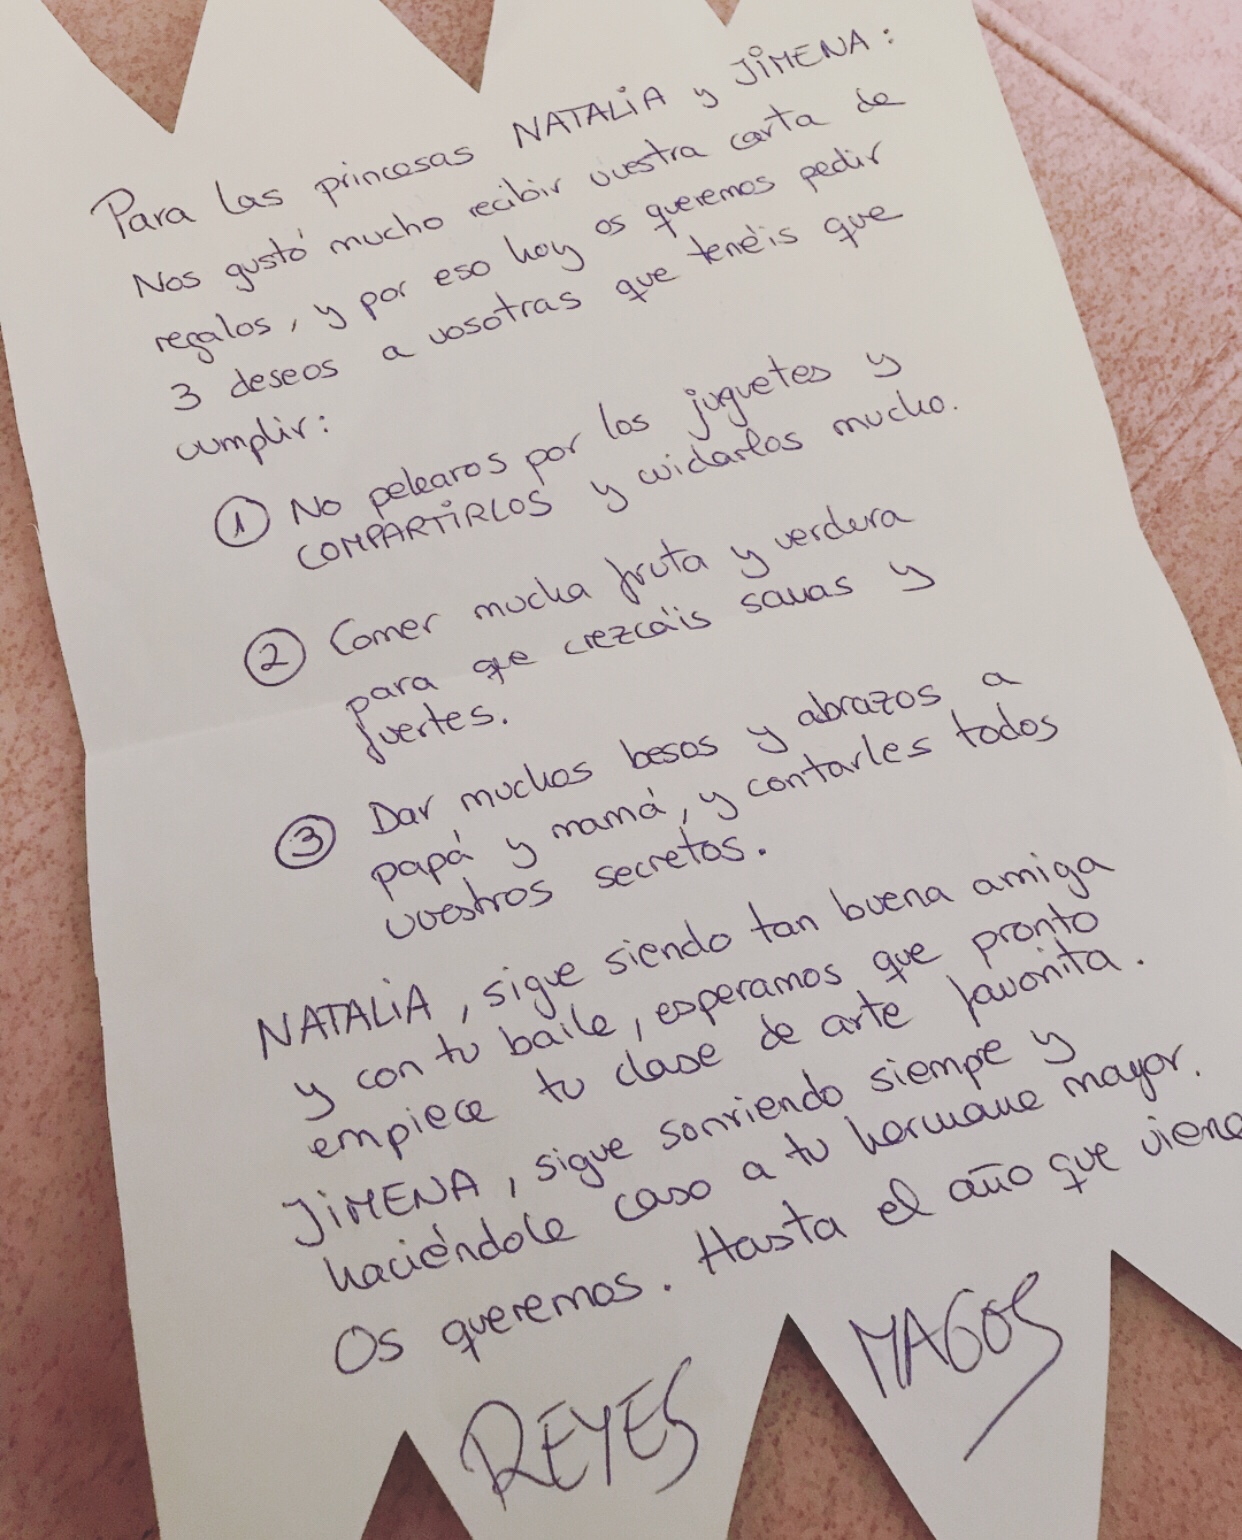 Para las princesas NATALIA y JIMENA:
Nos gustó mucho recibir vuestra carta de
regalos, y por eso hoy os queremos pedir
3 deseos a vosotras que tenéis que
cumplir:
1 No pelearos por los juguetes y
COMPARTIRLOS y cuidarlos mucho.
2 Comer mucha fruta y verdura
para que crezcáis sanas y
fuertes.
3 Dar muchos besos y abrazos a
papá y mamá, y contarles todos
vuestros secretos.
NATALIA, sigue siendo tan buena amiga
y con tu baile, esperamos que pronto
empiece tu clase de arte favorita.
JIMENA, sigue sonriendo siempre y
haciéndole caso a tu hermana mayor.
Os queremos. Hasta el año que viene
REYES MAGOS